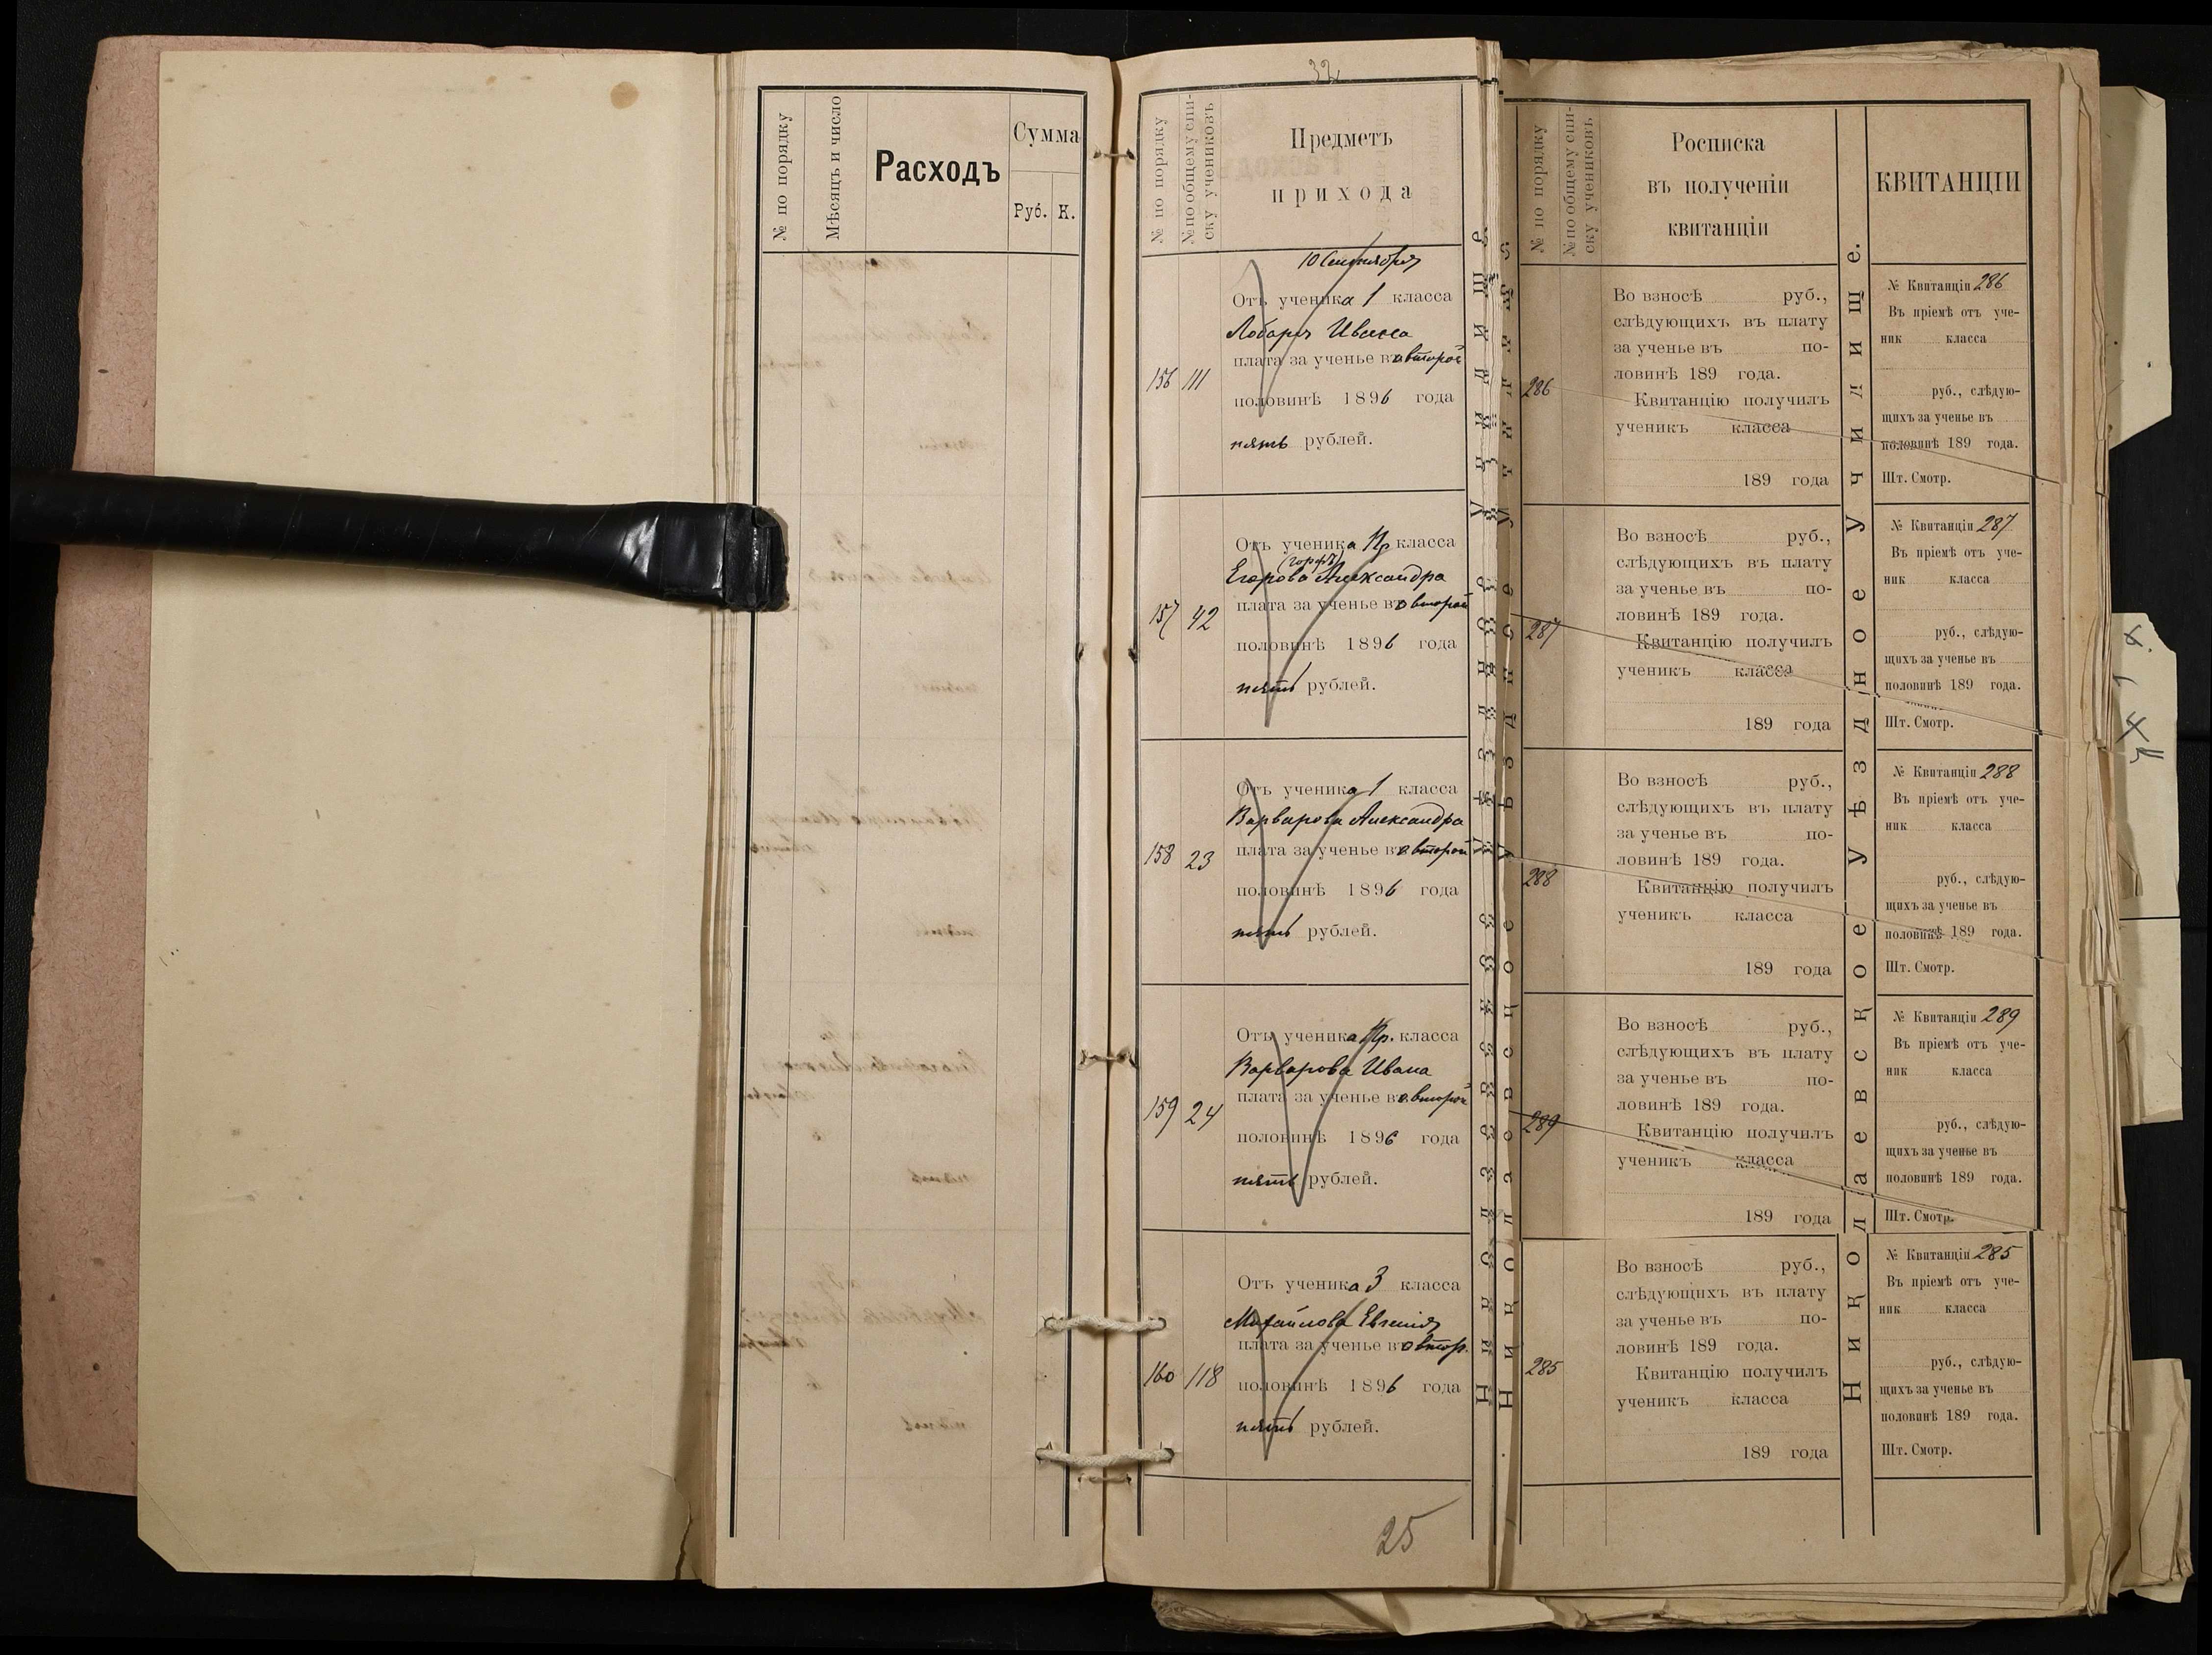 № по порядку
Мѣсяцъ и число
Расходъ
Сумма
Руб. К.
32
№ по порядку
№ по общему спи-
ску учениковъ
Предметъ
прихода
10 Сентября
Отъ ученика 1 класса
Лобаря Ивана
плата за ученье въ второй
156 111
половинѣ 1896 года
пять рублей.
Отъ ученика Пр класса
Егорова Александра
плата за ученье во второй
157 42
половинѣ 1896 года
пять рублей.
Отъ ученика 1 класса
Варварова Александра
плата за ученье во второй
158 23
половинѣ 1896 года
пять рублей.
Отъ ученика Пр. класса
Варварова Ивана
плата за ученье во второй
159 24
половинѣ 1896 года
пять рублей.
Отъ ученика 3 класса
Михайлова Евгенія
плата за ученье во втор.
160 118
половинѣ 1896 года
пять рублей.
25
№ по порядку
№ по общему спи-
ску учениковъ
Росписка
въ полученіи
квитанціи
Во взносѣ руб.,
слѣдующихъ въ плату
за ученье въ по-
ловинѣ 189 года.
286
Квитанцію получилъ
ученикъ класса
189 года
Во взносѣ руб.,
слѣдующихъ въ плату
за ученье въ по-
ловинѣ 189 года.
287
Квитанцію получилъ
ученикъ класса
189 года
Во взносѣ руб.,
слѣдующихъ въ плату
за ученье въ по-
ловинѣ 189 года.
288
Квитанцію получилъ
ученикъ класса
189 года
Во взносѣ руб.,
слѣдующихъ въ плату
за ученье въ по-
ловинѣ 189 года.
289
Квитанцію получилъ
ученикъ класса
189 года
Во взносѣ руб.,
слѣдующихъ въ плату
за ученье въ по-
ловинѣ 189 года.
285
Квитанцію получилъ
ученикъ класса
189 года
Николаевское Уѣздное Училище.
КВИТАНЦІИ
№ Квитанціи 286
Въ пріемѣ отъ уче-
ник класса
руб., слѣдую-
щихъ за ученье въ
половинѣ 189 года.
Шт. Смотр.
№ Квитанціи 287
Въ пріемѣ отъ уче-
ник класса
руб., слѣдую-
щихъ за ученье въ
половинѣ 189 года.
Шт. Смотр.
№ Квитанціи 288
Въ пріемѣ отъ уче-
ник класса
руб., слѣдую-
щихъ за ученье въ
половинѣ 189 года.
Шт. Смотр.
№ Квитанціи 289
Въ пріемѣ отъ уче-
ник класса
руб., слѣдую-
щихъ за ученье въ
половинѣ 189 года.
Шт. Смотр.
№ Квитанціи 285
Въ пріемѣ отъ уче-
ник класса
руб., слѣдую-
щихъ за ученье въ
половинѣ 189 года.
Шт. Смотр.